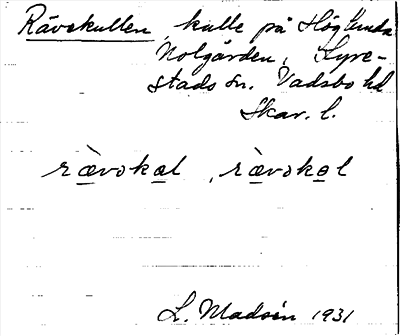 Rävekullen, kulle på Höglunda
Nolgården, Lyre-
stads sn. Vadsbo hd
Skar. l.
rævokal, rævokal
L. Madsén 1931